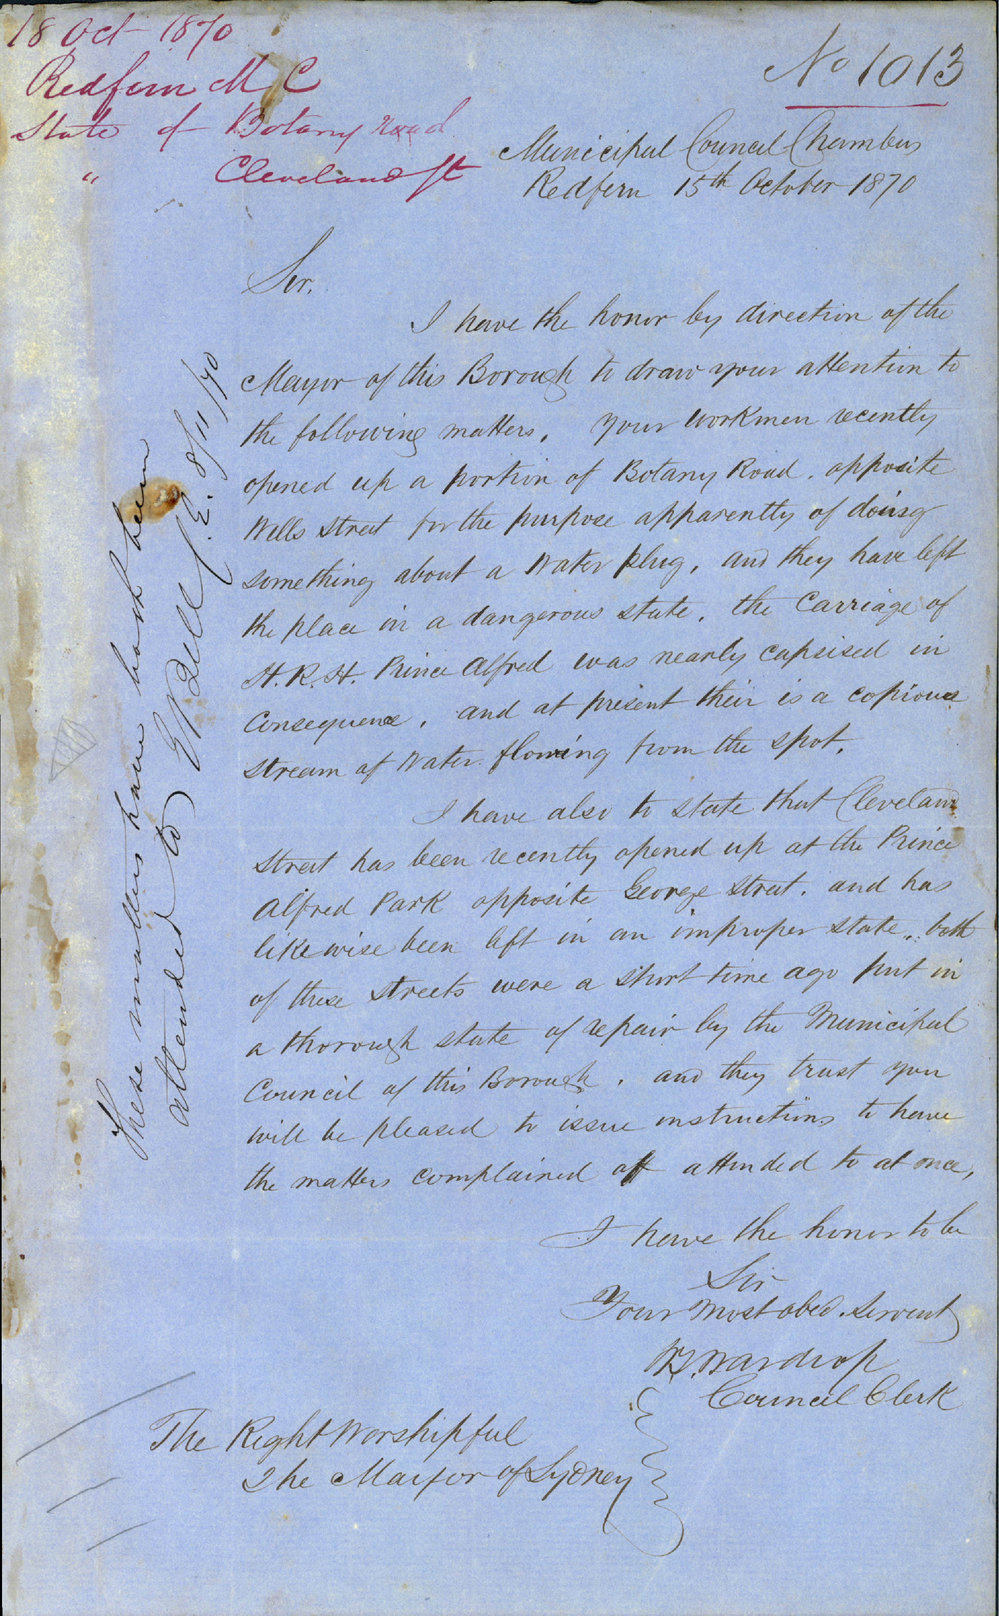 18 Oct 1870
Redfern M C
State of Botany Road
" Cleveland St
No 1013
Municipal Council Chambers
Redfern 15th October 1870
Sir,
I have the honor by direction of the
Mayor of this Borough to draw your attention to
the following matters. Your workmen recently
opened up a portion of Botany Road. opposite
Wells Street for the purpose apparently of doing
something about a Water plug, and they have left
the place in a dangerous state. the Carriage of
H.R.H. Prince Alfred was nearly capsised in
Consequence. and at present their is a copious
stream of Water flowing from the spot.
I have also to state that Cleveland
Street has been recently opened up at the Prince
Alfred Park opposite George Street. and has
likewise been left in an improper state, both
of these streets were a short time ago put in
a thorough state of repair by the Municipal
Council of this Borough. and they trust you
will be pleased to issue instructions to have
the matters complained off attended to at once,
I have the honor to be
Sir
Your Most obed. Servant
Wardrop
Council Clerk
The Right Worshipful
The Mayor of Sydney
These matters have both been
attended to E Bell C.E. 8/11/70